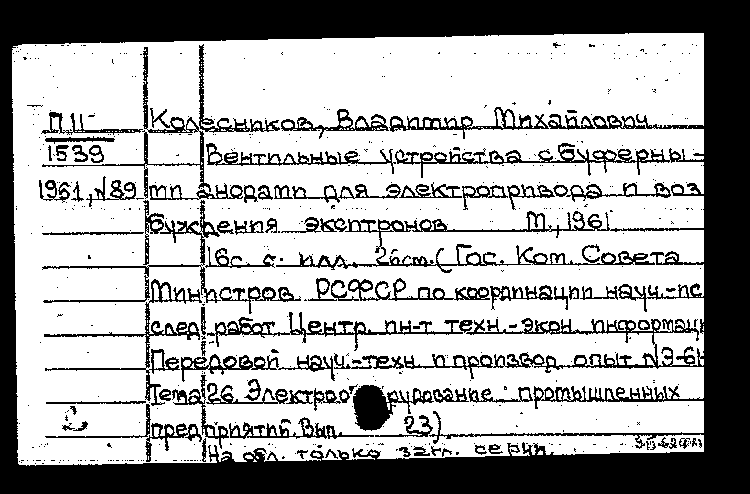 П 11 Колесников, Владимир Михайлович
1539 Вентильные устройства с буферны-
1961, №89 ми анодами для электропривода и воз
буждения экситронов М., 1961
16с. с. илл. 26см. (Гос. Ком. Совета
Министров РСФСР по координации науч.-ис
след. работ Центр. ин-т техн.-экон. информаци
Передовой науч.-техн. и производ. опыт №Э-61
Тема 26. Электроо рудование промышленных
предприятий. Вып. 23)
На обл. только загл. серии.